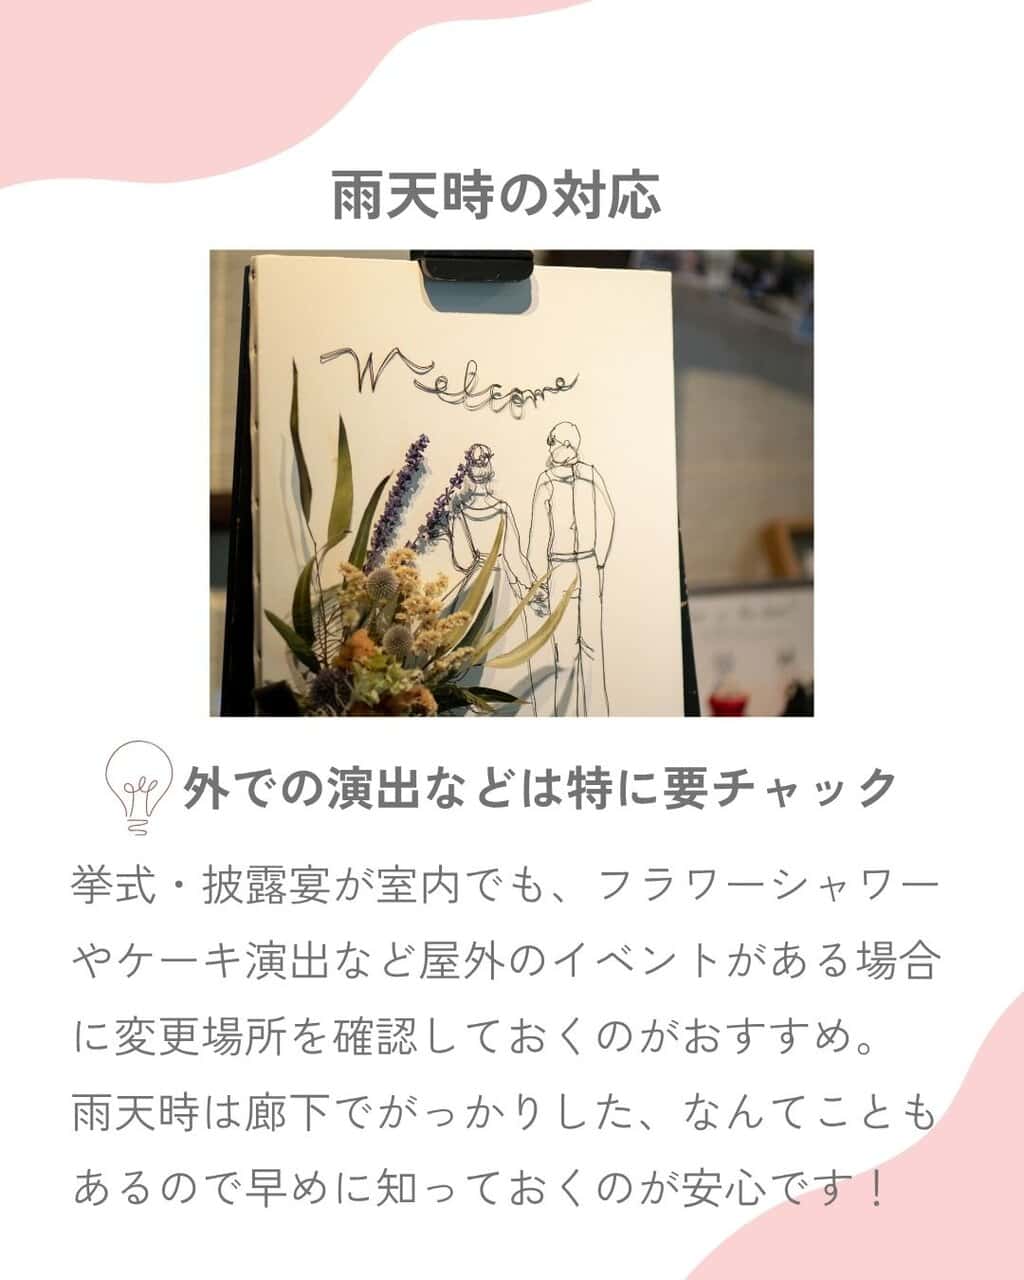 雨天時の対応
Welcome
外での演出などは特に要チャック
挙式・披露宴が室内でも、フラワーシャワー
やケーキ演出など屋外のイベントがある場合
に変更場所を確認しておくのがおすすめ。
雨天時は廊下でがっかりした、なんてことも
あるので早めに知っておくのが安心です！